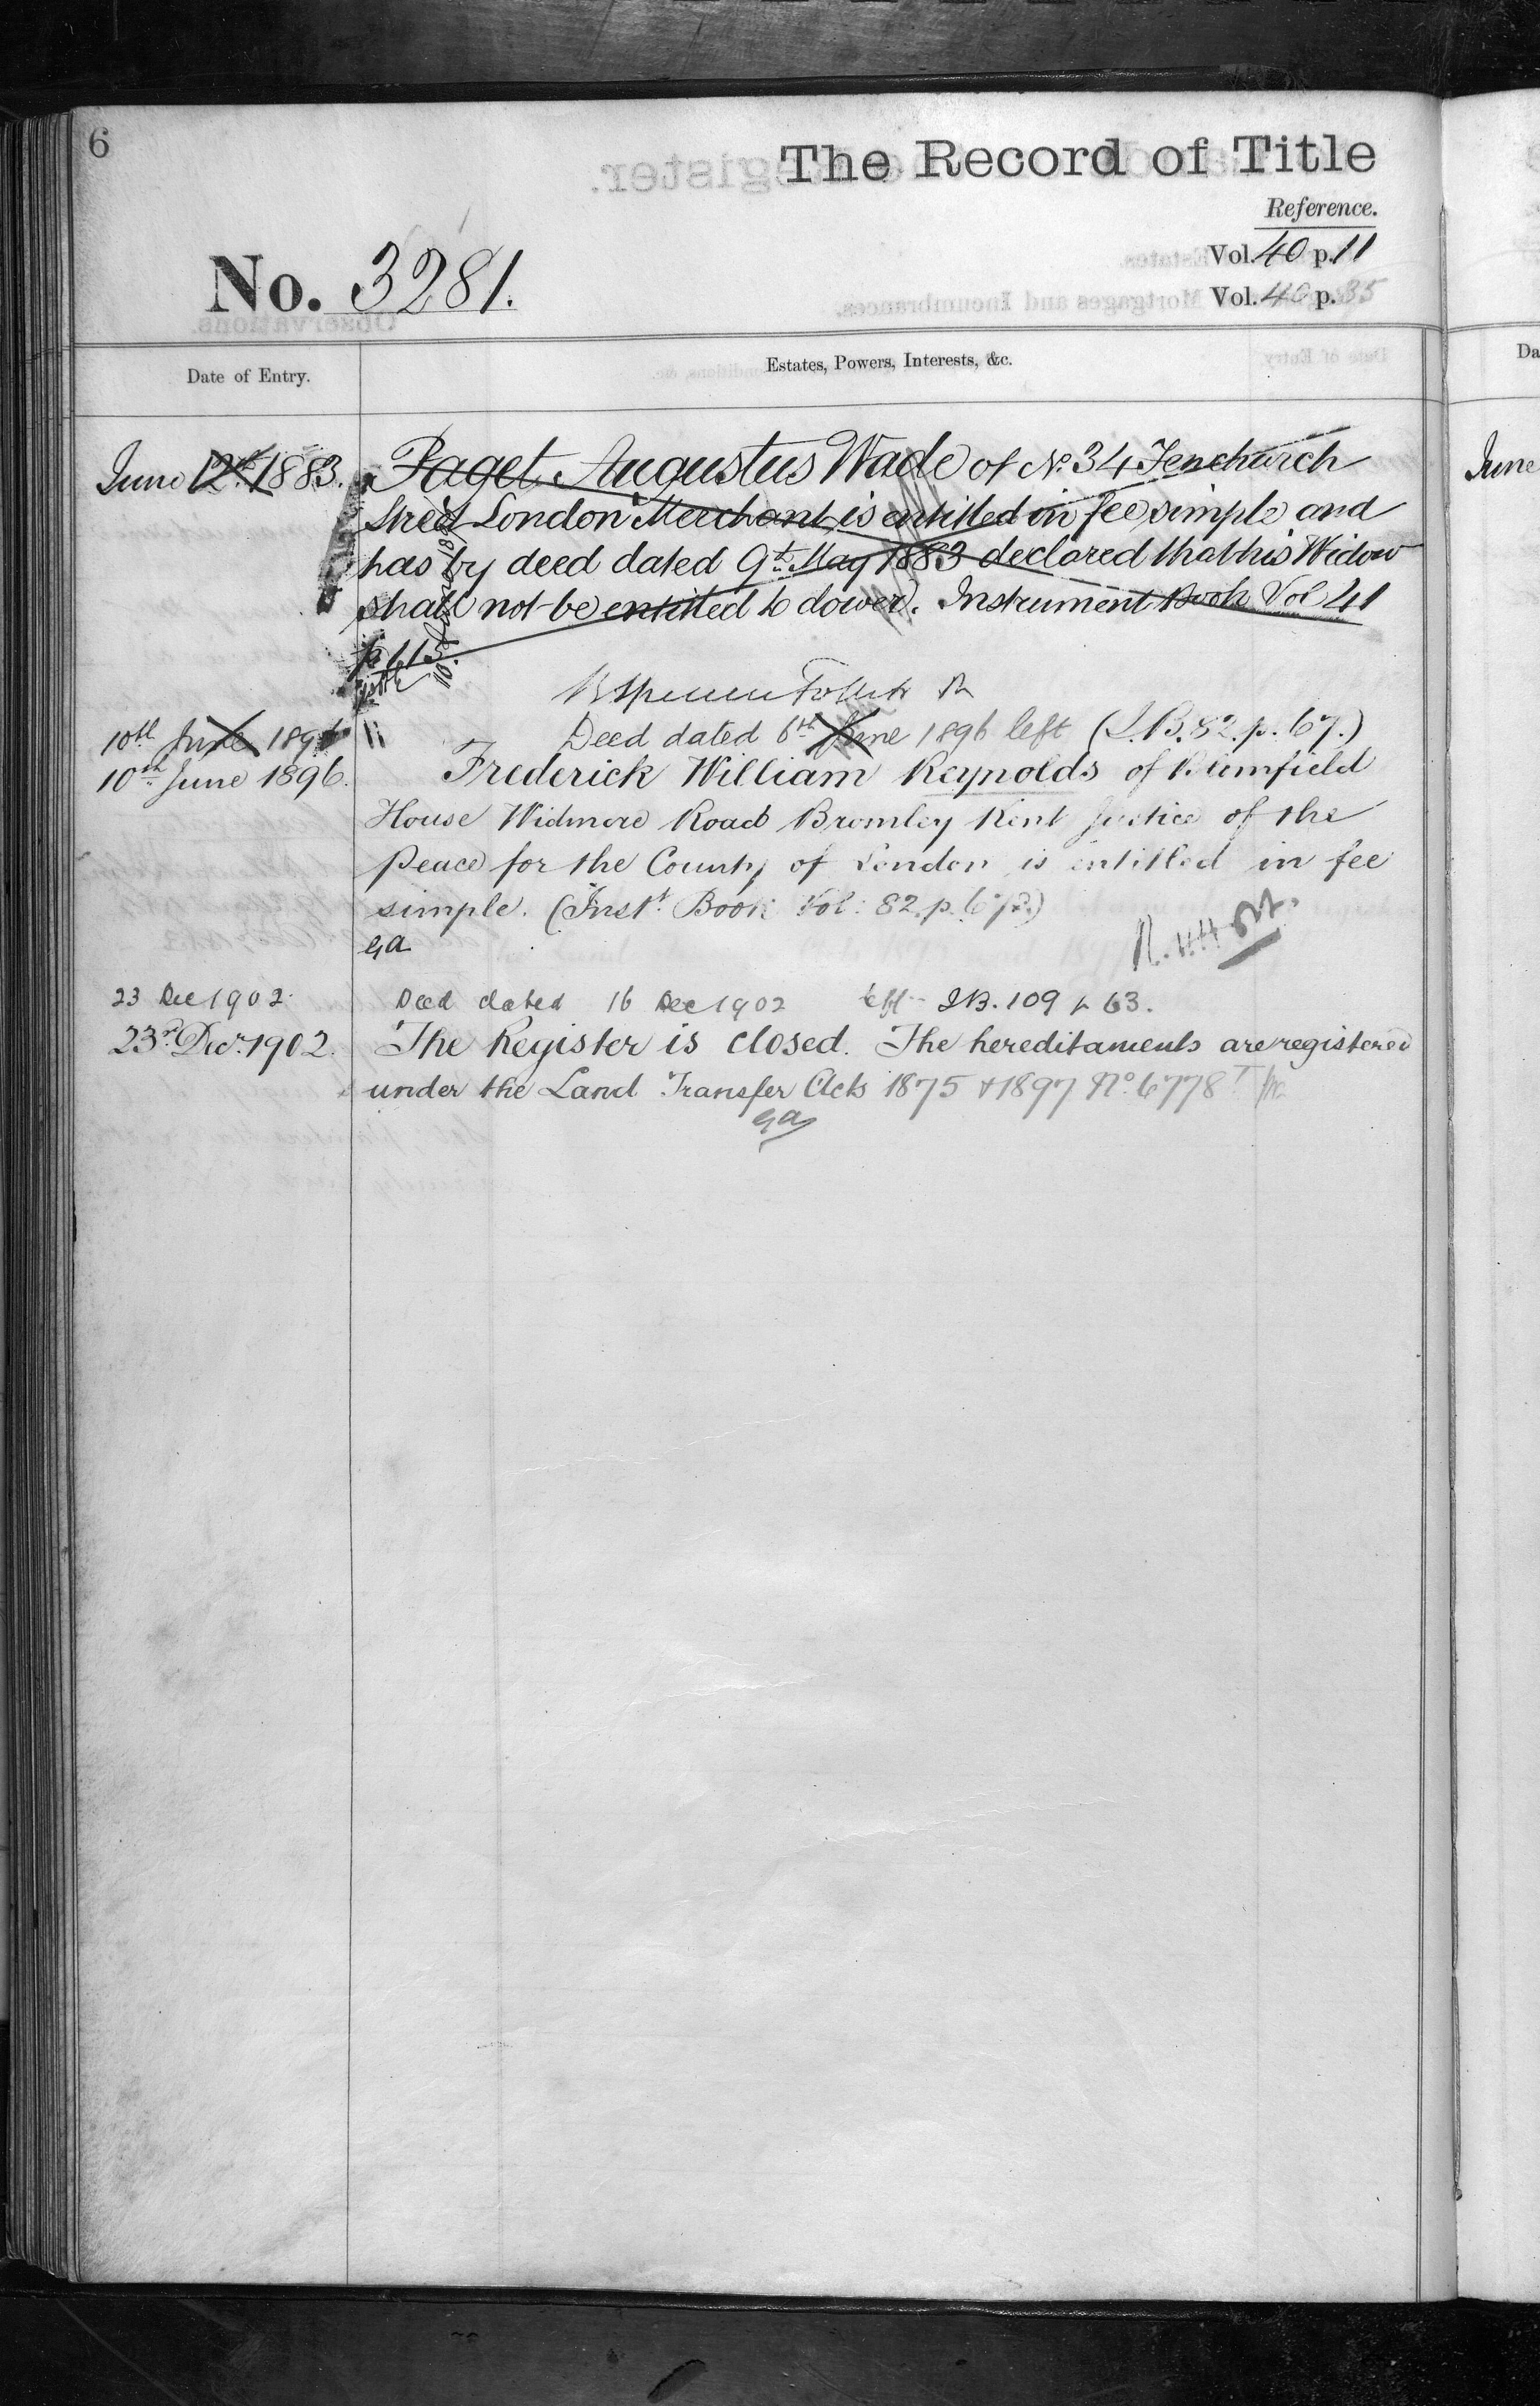 6
The Record of Title
Reference.
Vol. 40 p. 11
No. 3281.
Vol. 40 p. 35
Date of Entry.
Estates, Powers, Interests, &c.
June 12th 1883.
Paget Augustus Wade of No. 34 Fenchurch
Street London Merchant is entitled in fee simple and
has by deed dated 9th May 1883 declared that his Widow
shall not be entitled to dower. Instrument Book Vol 41
p 115
10th June 1896
Deed dated 6th June 1896 left (I.B. 82. p. 67.)
10th June 1896.
Frederick William Reynolds of
House Widmore Road Bromley Kent Justice of the
Peace for the County of London is entitled in fee
simple. (Inst. Book Vol: 82. p. 67.)
GA
23 Dec 1902.
Deed dated 16 Dec 1902 left I.B. 109 p 63.
23rd Decr. 1902.
The Register is closed. The hereditaments are registered
under the Land Transfer Acts 1875 & 1897 No. 6778
GA
Da
June